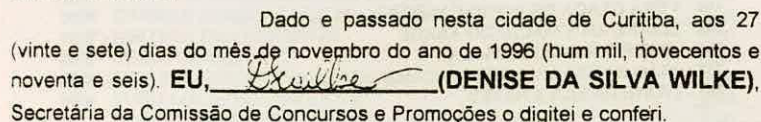 Dado e passado nesta cidade de Curitiba, aos 27
(vinte e sete) dias do mês de novembro do ano de 1996 (hum mil, novecentos e
noventa e seis). EU, (DENISE DA SILVA WILKE),
Secretária da Comissão de Concursos e Promoções o digitei e conferi.